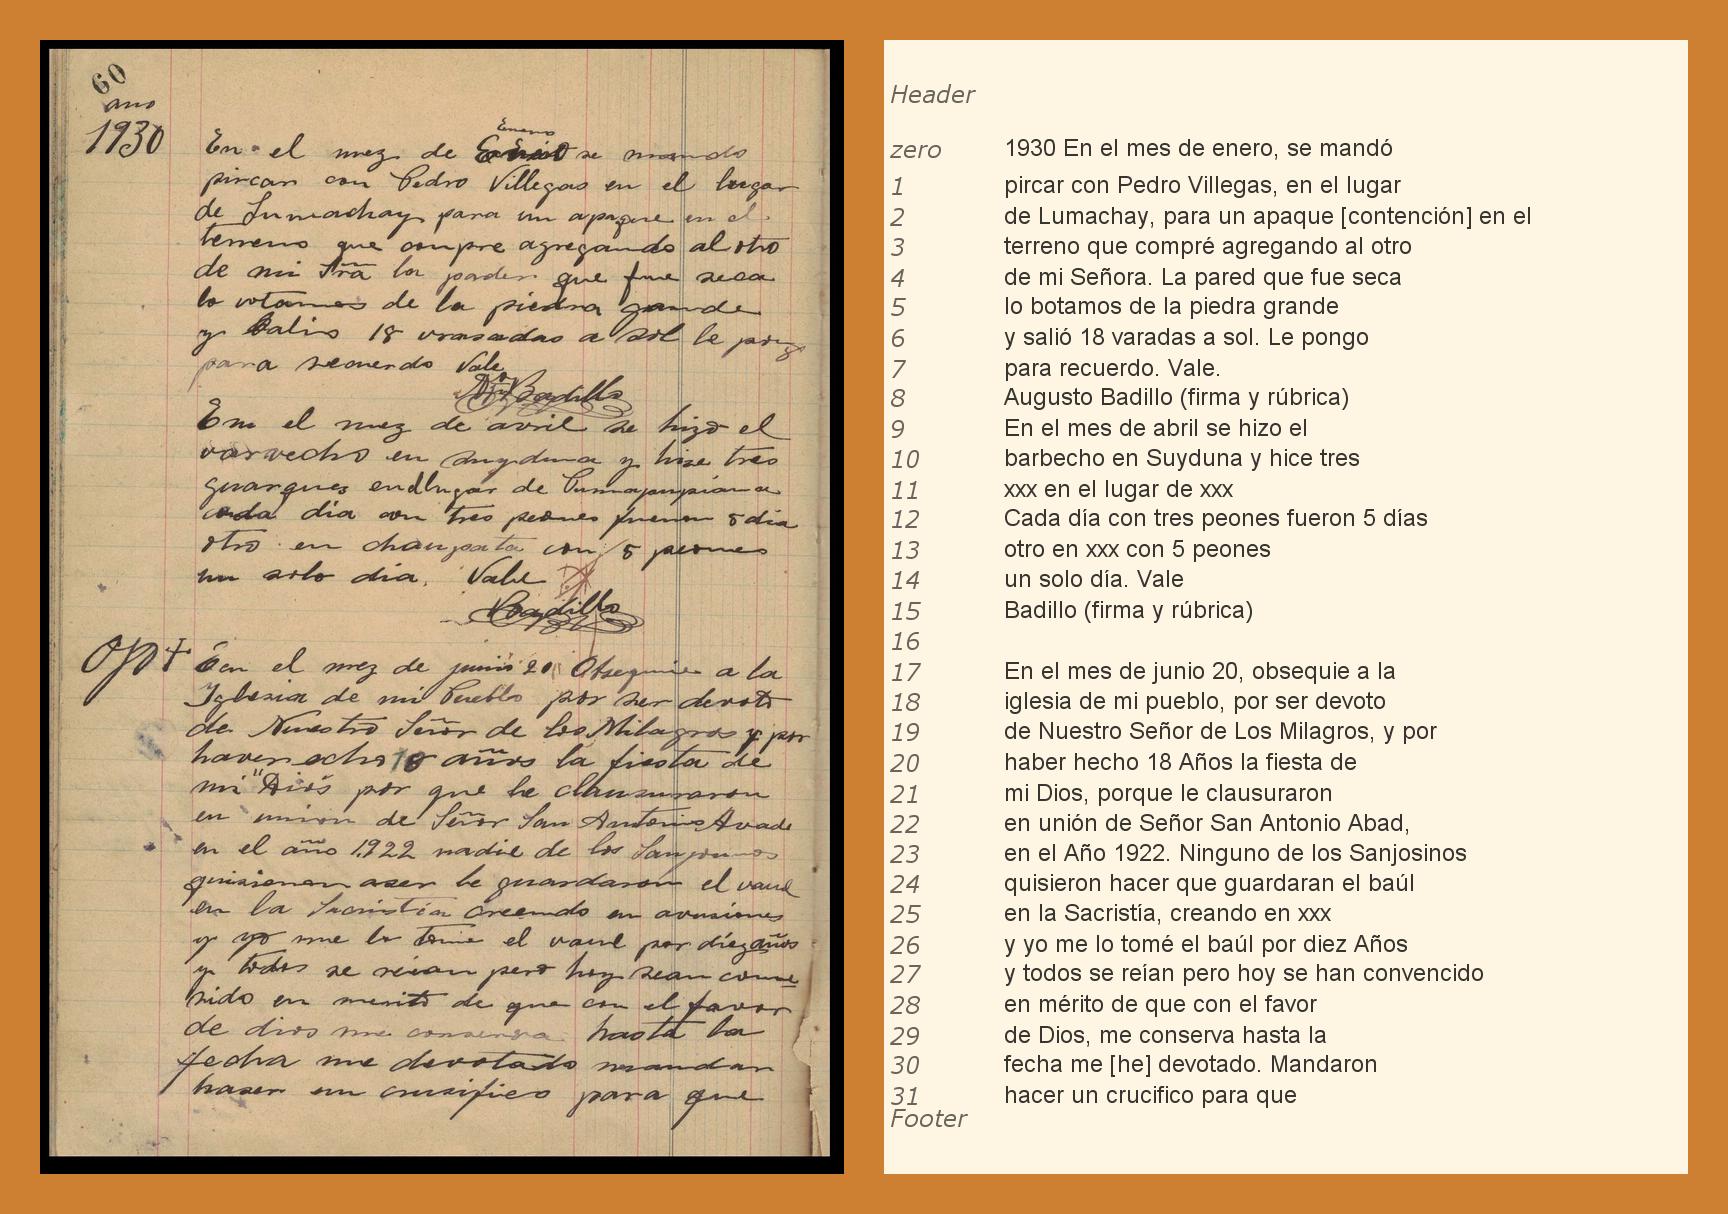 60
ano
1930
Enero
En el mez de se mando
pircar con Pedro Villegas en el lugar
de Lumachay para un apaque en el
terreno que conpre agregando al otro
de mi Sra la pader que fue seca
lo votamos de la piedra grande
y salio 18 a sol le pongo
para recuerdo Vale
Badillo
En el mez de avril se hizo el
varvecho en y hise tres
en el lugar de
cada dia con tres peones fueron 5 dia
otro en con 5 peones
un solo dia. Vale
Badillo
Ojo + En el mez de junio 20 Obsequie a la
Iglesia de mi Pueblo por ser devoto
de Nuestro Señor de los Milagros y por
haver echo 18 años la fiesta de
mi "Dios por que le clausuraron
en union de Señor San Antonio Avade
en el año 1922 nadie de los Sanjosinos
quisieron aser le guardaron el vaul
en la Sacristia creendo en
y yo me lo tome el vaul por diez años
y todos se reian pero hoy sean conve
sido en merito de que con el favor
de dios me conserva hasta la
fecha me devotado mandar
haser un crusifico para que
Header
zero 1930 En el mes de enero, se mandó
1 pircar con Pedro Villegas, en el lugar
2 de Lumachay, para un apaque [contención] en el
3 terreno que compré agregando al otro
4 de mi Señora. La pared que fue seca
5 lo botamos de la piedra grande
6 y salió 18 varadas a sol. Le pongo
7 para recuerdo. Vale.
8 Augusto Badillo (firma y rúbrica)
9 En el mes de abril se hizo el
10 barbecho en Suyduna y hice tres
11 xxx en el lugar de xxx
12 Cada día con tres peones fueron 5 días
13 otro en xxx con 5 peones
14 un solo día. Vale
15 Badillo (firma y rúbrica)
16
17 En el mes de junio 20, obsequie a la
18 iglesia de mi pueblo, por ser devoto
19 de Nuestro Señor de Los Milagros, y por
20 haber hecho 18 Años la fiesta de
21 mi Dios, porque le clausuraron
22 en unión de Señor San Antonio Abad,
23 en el Año 1922. Ninguno de los Sanjosinos
24 quisieron hacer que guardaran el baúl
25 en la Sacristía, creando en xxx
26 y yo me lo tomé el baúl por diez Años
27 y todos se reían pero hoy se han convencido
28 en mérito de que con el favor
29 de Dios, me conserva hasta la
30 fecha me [he] devotado. Mandaron
31 hacer un crucifico para que
Footer